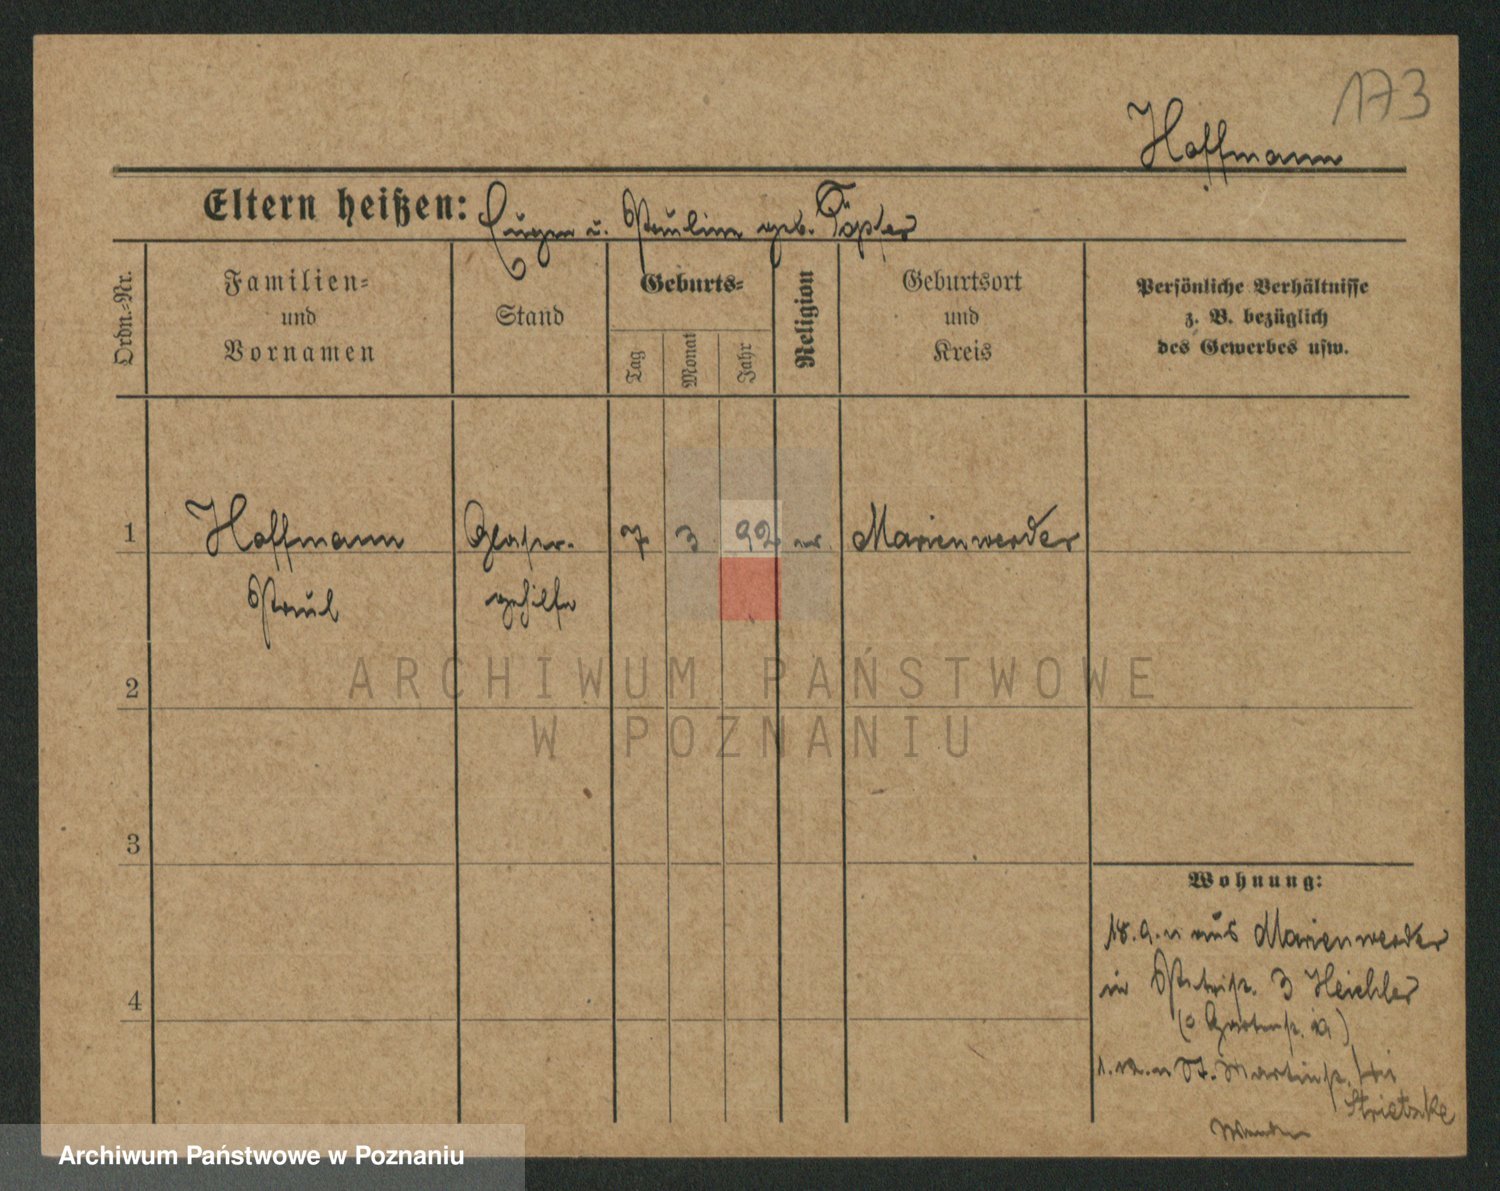 173
Hoffmann
Eltern heißen: Eugen u. Pauline geb. Töpfer
Ordn.-Nr.
Familien-
und
Vornamen
Stand
Geburts-
Tag
Monat
Jahr
Religion
Geburtsort
und
Kreis
Persönliche Verhältnisse
z. B. bezüglich
des Gewerbes usw.
1 Hoffmann Glaser- 7 3 92 Marienwerder
Paul gehilfe
2
3
4
Wohnung:
18.9. aus Marienwerder
in 3 Heichler
(o Gartenstr.
St. Martinstr.
Strietzke
ARCHIWUM PAŃSTWOWE
W POZNANIU
Archiwum Państwowe w Poznaniu